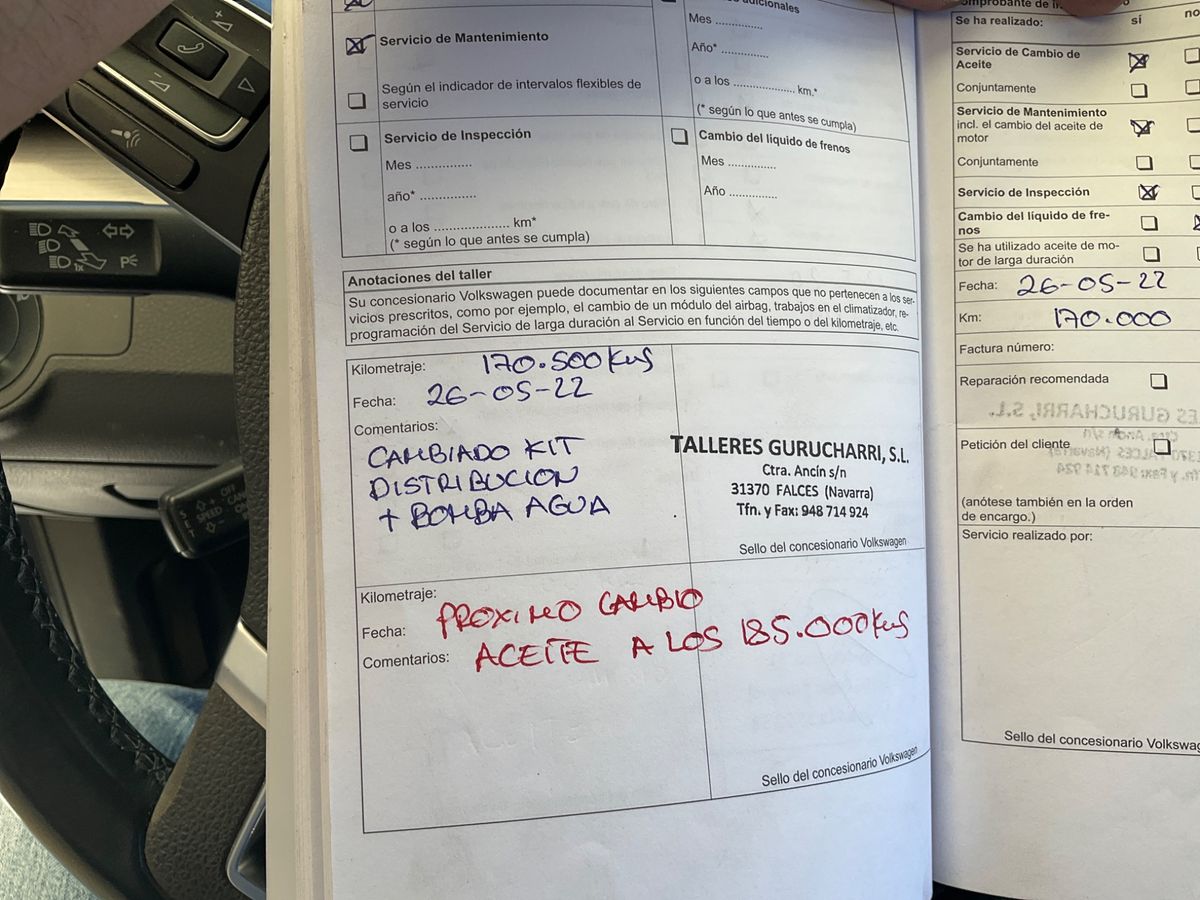 adicionales
Mes ..............
Servicio de Mantenimiento
Año* ..............
Según el indicador de intervalos flexibles de
servicio
o a los .................... km.*
(* según lo que antes se cumpla)
Servicio de Inspección
Mes ..............
año* ..............
o a los .................... km*
(* según lo que antes se cumpla)
Cambio del líquido de frenos
Mes ..............
Año ..............
Anotaciones del taller
Su concesionario Volkswagen puede documentar en los siguientes campos que no pertenecen a los ser-
vicios prescritos, como por ejemplo, el cambio de un módulo del airbag, trabajos en el climatizador, re-
programación del Servicio de larga duración al Servicio en función del tiempo o del kilometraje, etc.
Kilometraje: 170.500 Kms
Fecha: 26-05-22
Comentarios:
CAMBIADO KIT
DISTRIBUCION
+ BOMBA AGUA
TALLERES GURUCHARRI, S.L.
Ctra. Ancín s/n
31370 FALCES (Navarra)
Tfn. y Fax: 948 714 924
Sello del concesionario Volkswagen
Kilometraje:
Fecha: PROXIMO CAMBIO
Comentarios: ACEITE A LOS 185.000 Kms
Sello del concesionario Volkswagen
Se ha realizado: sí no
Servicio de Cambio de
Aceite
Conjuntamente
Servicio de Mantenimiento
incl. el cambio del aceite de
motor
Conjuntamente
Servicio de Inspección
Cambio del líquido de fre-
nos
Se ha utilizado aceite de mo-
tor de larga duración
Fecha: 26-05-22
Km: 170.000
Factura número:
Reparación recomendada
Petición del cliente
(anótese también en la orden
de encargo.)
Servicio realizado por:
Sello del concesionario
OFF
SPEED
1x